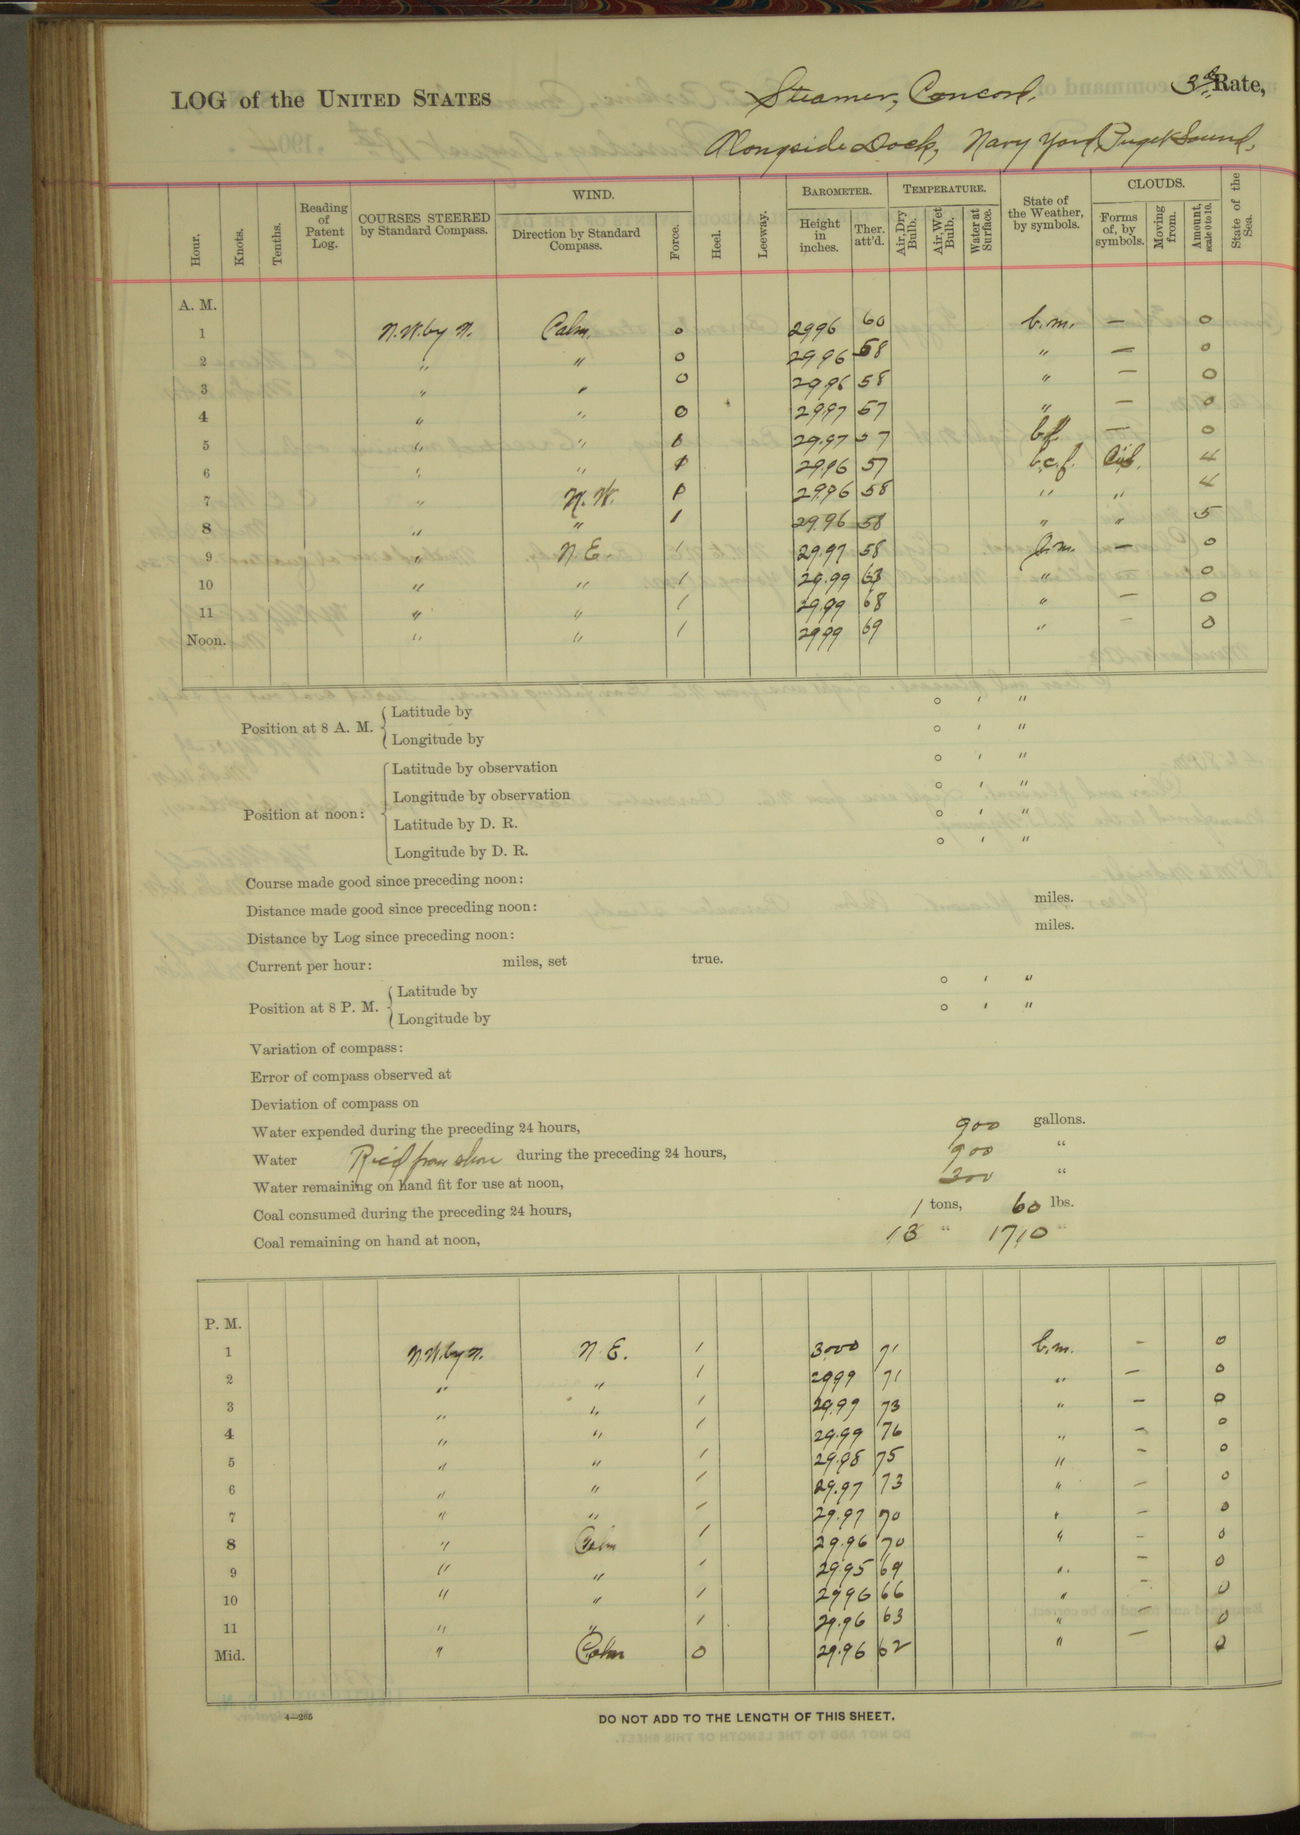 LOG of the UNITED STATES Steamer, Concord, 3d Rate,
Alongside Dock, Navy Yard, Puget Sound,
Hour. Knots. Tenths. Reading of Patent Log. COURSES STEERED by Standard Compass. WIND. Direction by Standard Compass. Force. Heel. Leeway. BAROMETER. Height in inches. Ther. att'd. TEMPERATURE. Air, Dry Bulb. Air, Wet Bulb. Water at Surface. State of the Weather, by symbols. CLOUDS. Forms of, by symbols. Moving from. Amount, scale 0 to 10. State of the Sea.
A. M.
1 N.W. by N. Calm. 0 29.96 60 b.m. — 0
2 " " 0 29.96 58 " — 0
3 " " 0 29.96 58 " — 0
4 " " 0 29.97 57 " — 0
5 " " 29.97 57 b.f. — 0
6 " " 29.96 57 b.c.f. 4
7 " N.W. 29.96 58 " " 4
8 " " 1 29.96 58 " " 5
9 " N.E. 1 29.97 58 b.m. — 0
10 " " 1 29.99 63 " — 0
11 " " 1 29.99 68 " — 0
Noon. " " 1 29.99 69 " — 0
Position at 8 A. M. Latitude by ° ' "
Longitude by ° ' "
Position at noon: Latitude by observation ° ' "
Longitude by observation ° ' "
Latitude by D. R. ° ' "
Longitude by D. R. ° ' "
Course made good since preceding noon:
Distance made good since preceding noon: miles.
Distance by Log since preceding noon: miles.
Current per hour: miles, set true.
Position at 8 P. M. Latitude by ° ' "
Longitude by ° ' "
Variation of compass:
Error of compass observed at
Deviation of compass on
Water expended during the preceding 24 hours, 900 gallons.
Water Rec'd from shore during the preceding 24 hours, 900 "
Water remaining on hand fit for use at noon, 200 "
Coal consumed during the preceding 24 hours, 1 tons, 60 lbs.
Coal remaining on hand at noon, 13 " 1710 "
P. M.
1 N.W. by N. N.E. 1 30.00 71 b.m. — 0
2 " " 1 29.99 71 " — 0
3 " " 1 29.99 73 " — 0
4 " " 1 29.99 76 " — 0
5 " " 1 29.98 75 " — 0
6 " " 1 29.97 73 " — 0
7 " " 1 29.97 70 " — 0
8 " Calm 1 29.96 70 " — 0
9 " " 1 29.95 69 " — 0
10 " " 1 29.96 66 " — 0
11 " " 1 29.96 63 " — 0
Mid. " Calm 0 29.96 62 " — 0
4—265 DO NOT ADD TO THE LENGTH OF THIS SHEET.